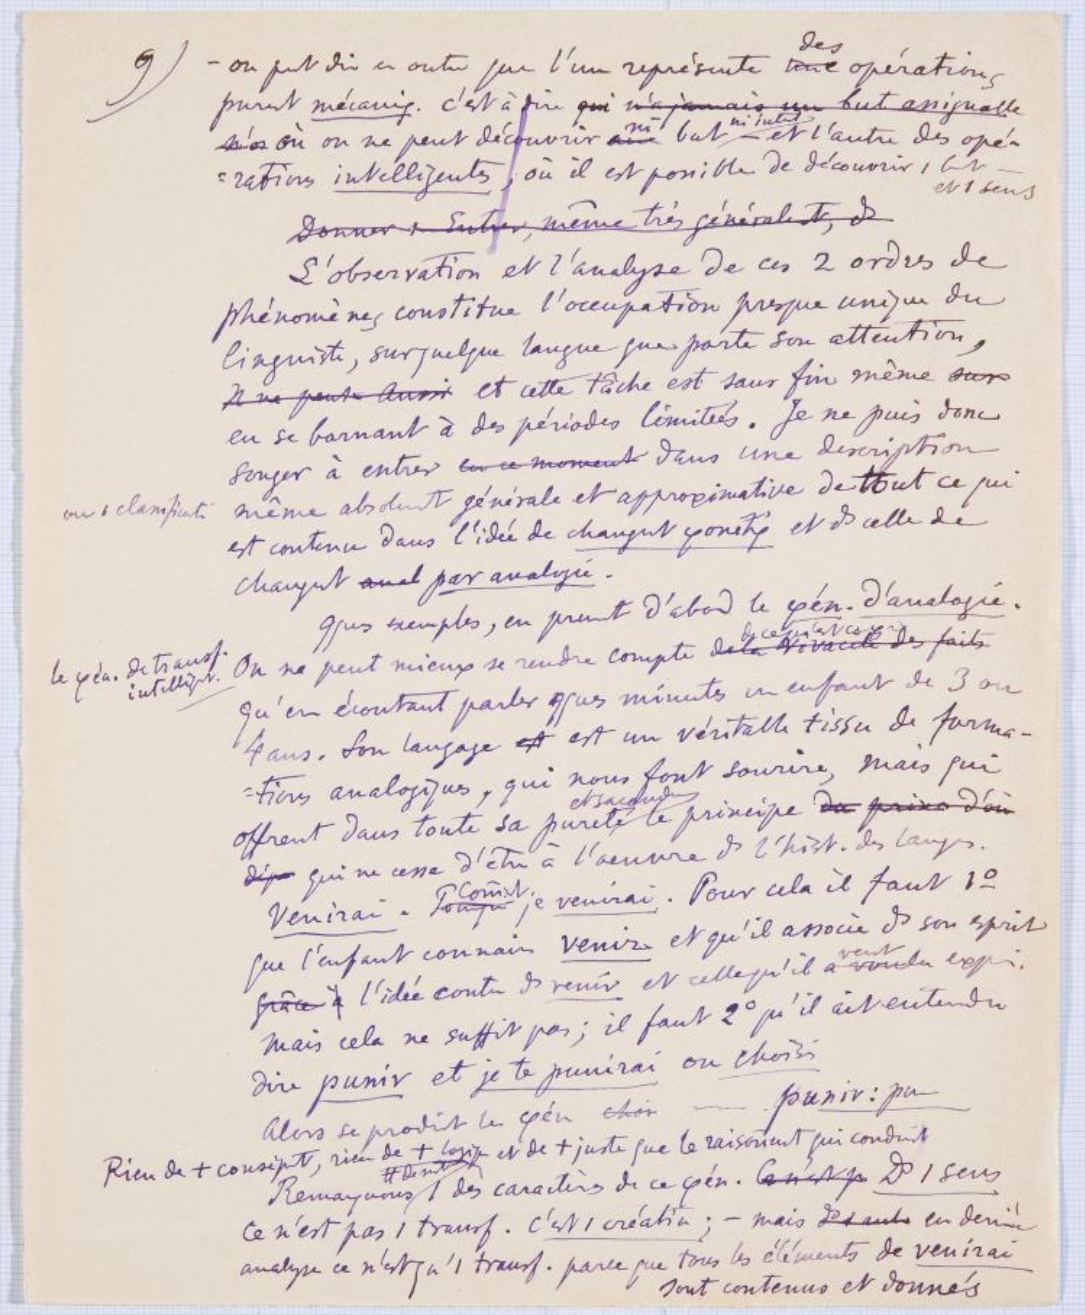 9)
- on peut dire en outre que l'un représente des une opérations
puremt mécaniq. c'est à dire qui n'a jamais un but assignable
n'os où on ne peut découvrir ni but ni intention et l'autre des opé-
=rations intelligentes, où il est possible de découvrir 1 but
et 1 sens
Donner + Entrer, même très généralemt, ds
L'observation et l'analyse de ces 2 ordres de
phénomènes constitue l'occupation presque unique du
linguiste, sur quelque langue que porte son attention,
Il ne peut Aussi et cette tâche est sans fin même sur
en se bornant à des périodes limitées. Je ne puis donc
songer à entrer en ce moment dans une description
ou 1 classificati
même absolumt générale et approximative de tout ce qui
est contenu dans l'idée de changemt φonétq et ds celle de
changemt anal par analogie.
Qques exemples, en prenant d'abord le φén. d'analogie.
le φén. de transf.
intelligte.
On ne peut mieux se rendre compte de la vivacité des faits
qu'en écoutant parler qques minutes un enfant de 3 ou
4 ans. Son langage est est un véritable tissu de forma-
=tions analogiques, qui nous font sourire, mais qui
offrent dans toute sa pureté le principe du princ d'où
qui ne cesse d'être à l'oeuvre ds l'hist. des langs.
Venirai. Commt je venirai. Pour cela il faut 1º
que l'enfant connaisse venir et qu'il associe ds son esprit
grâce à l'idée contenue ds venir et celle qu'il a voulu veut expr.
Mais cela ne suffit pas; il faut 2º qu'il ait entendu
dire punir et je te punirai ou choisi
Alors se produit le φén choi — punir: pu
Rien de + conséqnt, rien de + logiq et de + juste que le raisonnemt qui conduit
Remarquons 1 des caractères de ce φén. Ce n'est p Ds 1 sens
ce n'est pas 1 transf. c'est 1 création; - mais en dernière
analyse ce n'est qu'1 transf. parce que tous les éléments de venirai
sont contenus et donnés